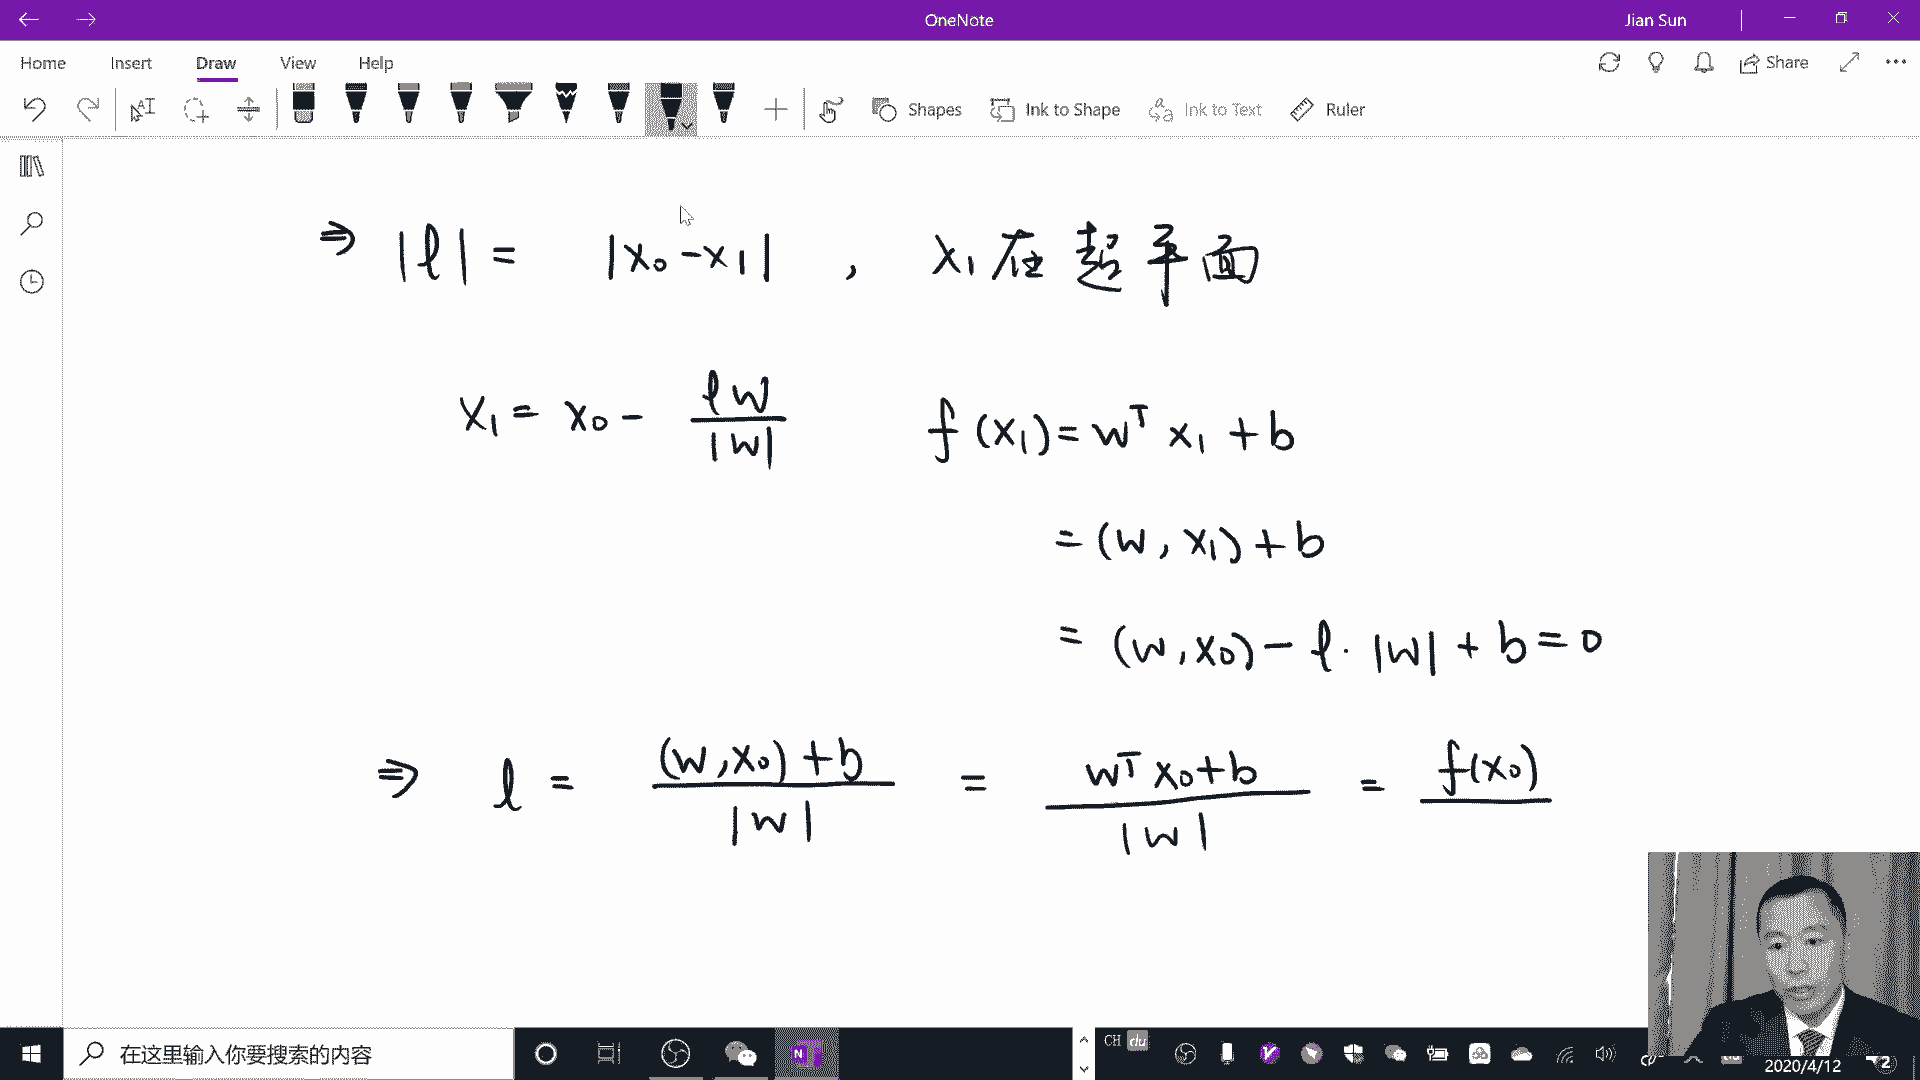 OneNote
Jian Sun
Home Insert Draw View Help
Share
Shapes Ink to Shape Ink to Text Ruler
⇒ |l| = |x₀-x₁| , x₁在超平面
x₁ = x₀ - lw/|w| f(x₁) = wᵀ x₁ + b
= (w, x₁) + b
= (w, x₀) - l · |w| + b = 0
⇒ l = (w, x₀) + b / |w| = wᵀ x₀ + b / |w| = f(x₀)
在这里输入你要搜索的内容
CH du
2020/4/12
2